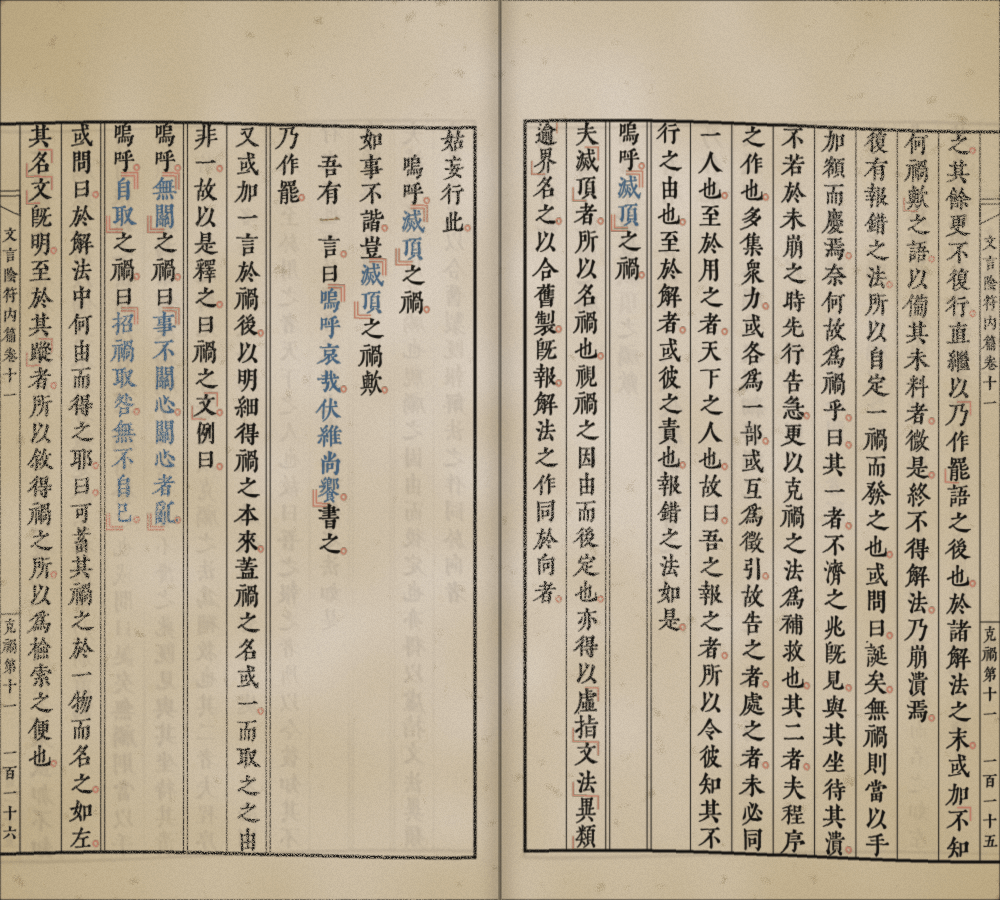 文言陰符内篇卷十一 克禍第十一 一百一十五
之。其餘更不復行。直繼以「乃作罷」語之後也。於諸解法之末。或加「不知
何禍歟」之語。以備其未料者。徵是。終不得解法。乃崩潰焉。
復有報錯之法。所以自定一禍而發之也。或問曰。誕矣。無禍則當以手
加額而慶焉。奈何故爲禍乎。曰。其一者。不濟之兆旣見。與其坐待其潰。
不若於未崩之時先行告急。更以克禍之法爲補救也。其二者。夫程序
之作也。多集衆力。或各爲一部。或互爲徵引。故告之者。處之者。未必同
一人也。至於用之者。天下之人也。故曰。吾之報之者。所以令彼知其不
行之由也。至於解者。或彼之責也。報錯之法如是。
嗚呼。「滅頂」之禍。
夫「滅頂」者。所以名禍也。視禍之因由而後定也。亦得以「虛指」「文法」「異類」
「逾界」名之。以合舊製。旣報。解法之作同於向者。
姑妄行此。
嗚呼。「滅頂」之禍。
如事不諧。豈「滅頂」之禍歟。
吾有一言。曰「嗚呼哀哉。伏維尚饗」書之。
乃作罷。
又或加一言於禍後。以明細得禍之本來。蓋禍之名或一。而取之之由
非一。故以是釋之。曰禍之「文」。例曰。
嗚呼。「無關」之禍。曰「事不關心。關心者亂」。
嗚呼。「自取」之禍。曰「招禍取咎。無不自己」。
或問曰。於解法中何由而得之耶。曰。可蓄其禍之於一物而名之。如左。
其「名」「文」旣明。至於其「蹤」者。所以敘得禍之所。以爲檢索之便也。
文言陰符内篇卷十一 克禍第十一 一百一十六